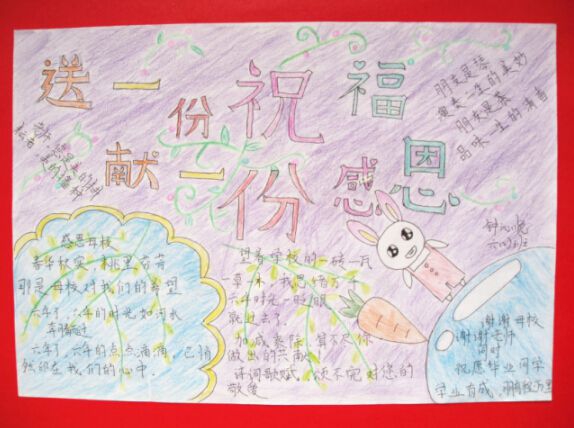 送一份祝福
献一份感恩
朋友是琴
演奏一生的美妙
朋友是茶
品味一生的清香
老师，您是美的
美的播种
感恩母校
春华秋实，桃里芬芳
那是母校对我们的希望
六年了，六年的时光，如流水
奔腾
六年了，六年的点点滴滴，已悄
然印在我们的心中。
望着学校的一砖一瓦
一草一木，我思绪万千
六年时光一眨眼
就过去了。
加减乘除，算不尽你
做出的贡献
诗词歌赋，颂不完对您的
敬爱
钟
六
谢谢母校
谢谢老师
同时
祝愿毕业同学
学业有成，鹏程万里